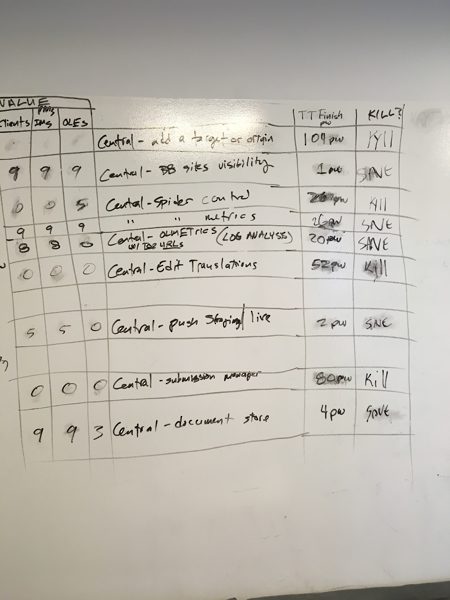 VALUE
Clients PMs/IMs OLES TT Finish pw KILL?
Central - add a target or origin 109 pw Kill
9 9 9 Central - DB sites visibility 1 pw SAVE
0 0 5 Central - Spider control Kill
9 9 9 " " metrics 26 pw SAVE
8 8 0 Central - OLMETRICS (LOG ANALYSIS) 20 pw SAVE
w/ Top URLs
0 0 0 Central - Edit Translations 52 pw Kill
5 5 0 Central - push Staging/live 2 pw
0 0 0 Central - submission manager 80 pw Kill
9 9 3 Central - document store 4 pw SAVE